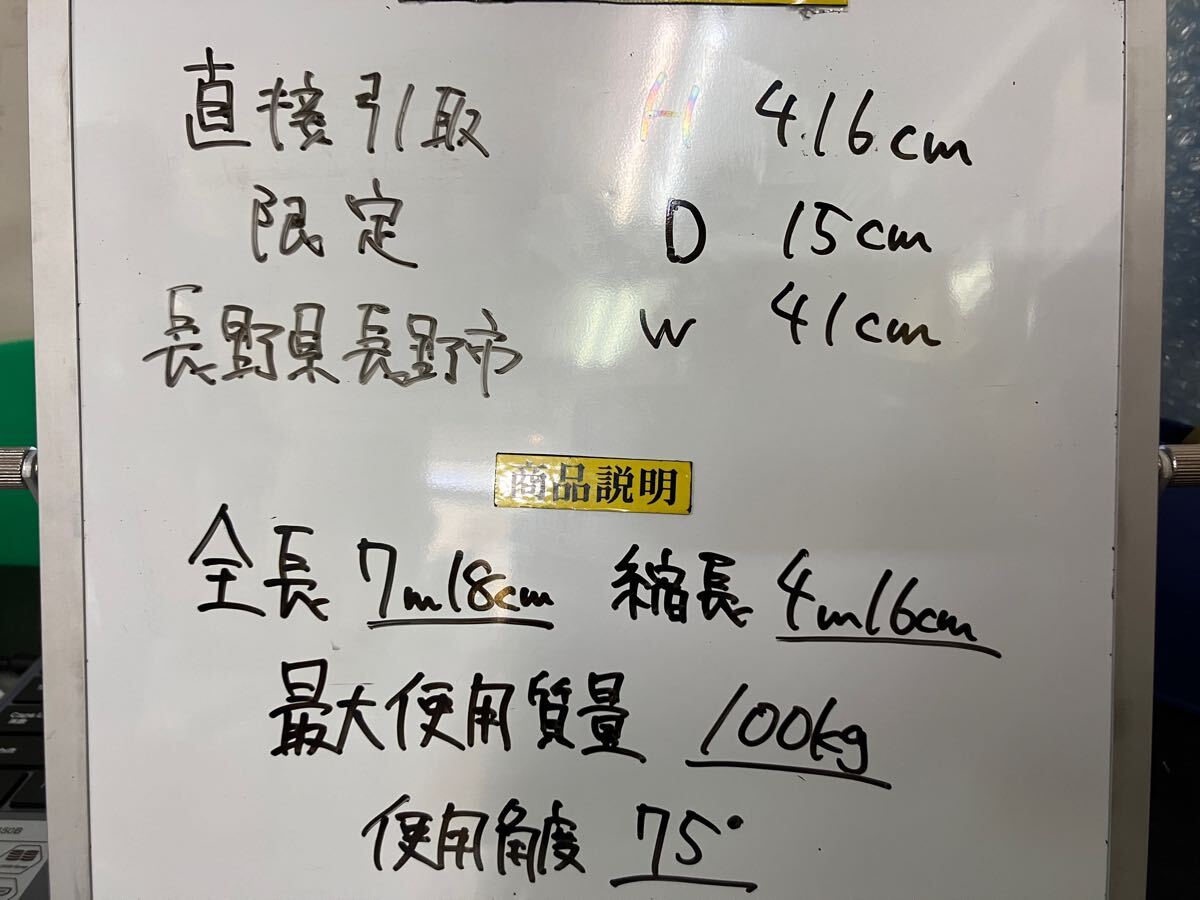 直接引取
限定
長野県長野市
H 416cm
D 15cm
W 41cm
商品説明
全長 7m18cm 縮長 4m16cm
最大使用質量 100kg
使用角度 75°